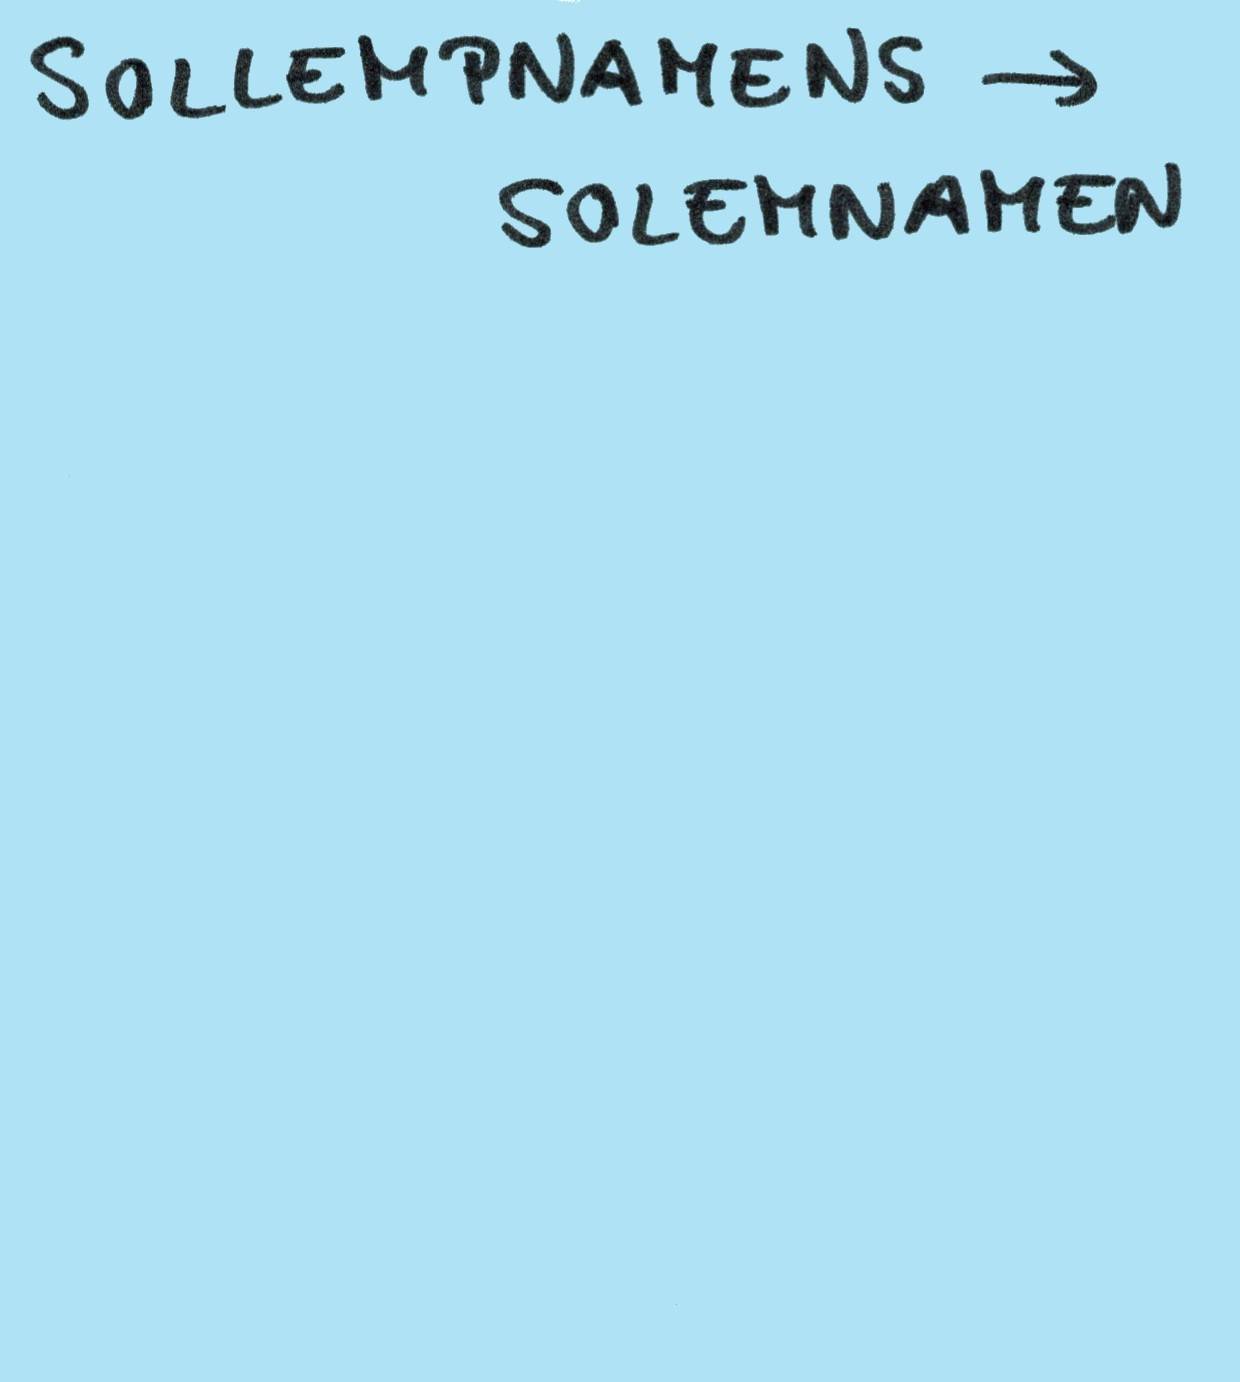 SOLLEMPNAMENS →
SOLEMNAMEN